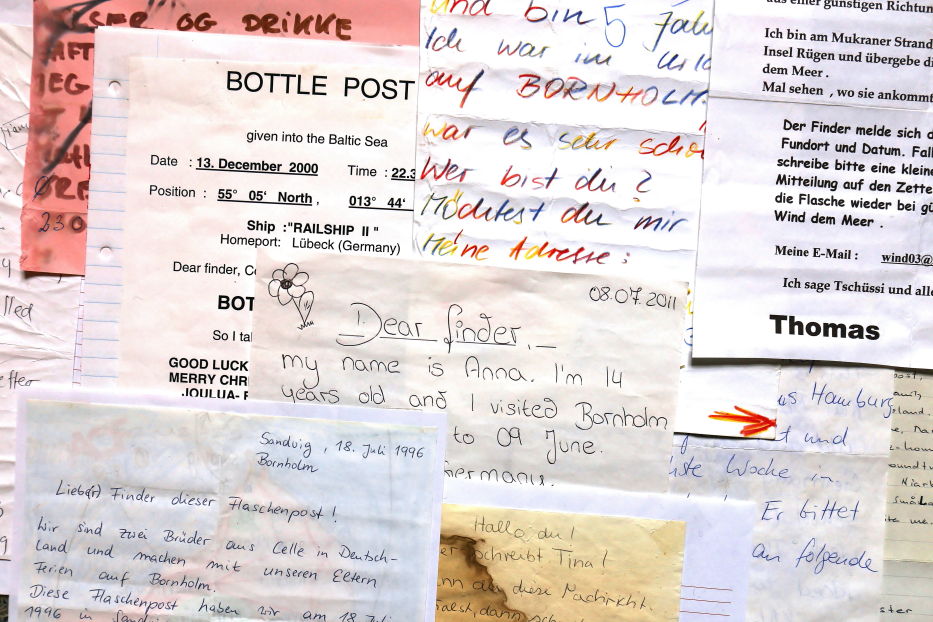 OG DRIKKE
BOTTLE POST
given into the Baltic Sea
Date : 13. December 2000 Time : 22.3
Position : 55° 05' North , 013° 44'
Ship :"RAILSHIP II "
Homeport: Lübeck (Germany)
Dear finder,
BOT
So I
GOOD LUCK
MERRY
JOULUA-
und bin 5
Ich war im
auf BORNHOLM.
war es sehr
Wer bist du ?
Möchtest du mir
Meine Adresse :
aus einer günstigen
Ich bin am Mukraner Strand
Insel Rügen und übergebe
dem Meer .
Mal sehen , wo sie ankommt
Der Finder melde sich
Fundort und Datum.
schreibe bitte eine kleine
Mitteilung auf den
die Flasche wieder bei
Wind dem Meer .
Meine E-Mail : wind03@
Ich sage Tschüssi und
Thomas
08.07.2011
Dear finder,
my name is Anna. I'm 14
years old and I visited Bornholm
to 09 June.
Sandvig , 18. Juli 1996
Bornholm
Liebe(r) Finder dieser Flaschenpost !
Wir sind zwei Brüder aus Celle in Deutsch-
land und machen mit unseren Eltern
Ferien auf Bornholm.
Diese Flaschenpost haben wir am 18. Juli
1996 in
Hallo du !
schreibt Tina !
diese Nachricht.
Hamburg
und
Woche in
Er bittet
an folgende